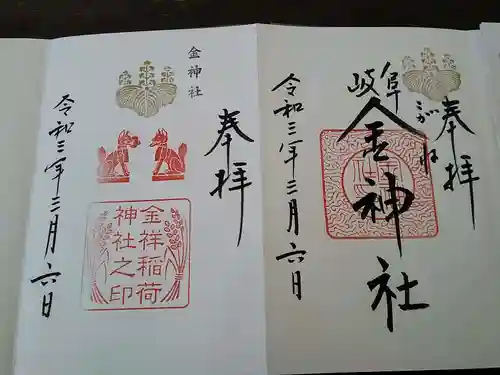 奉拝
岐阜
こがね
金神社
令和三年三月六日
奉拝
金神社
金祥稲荷
神社之印
令和三年三月六日